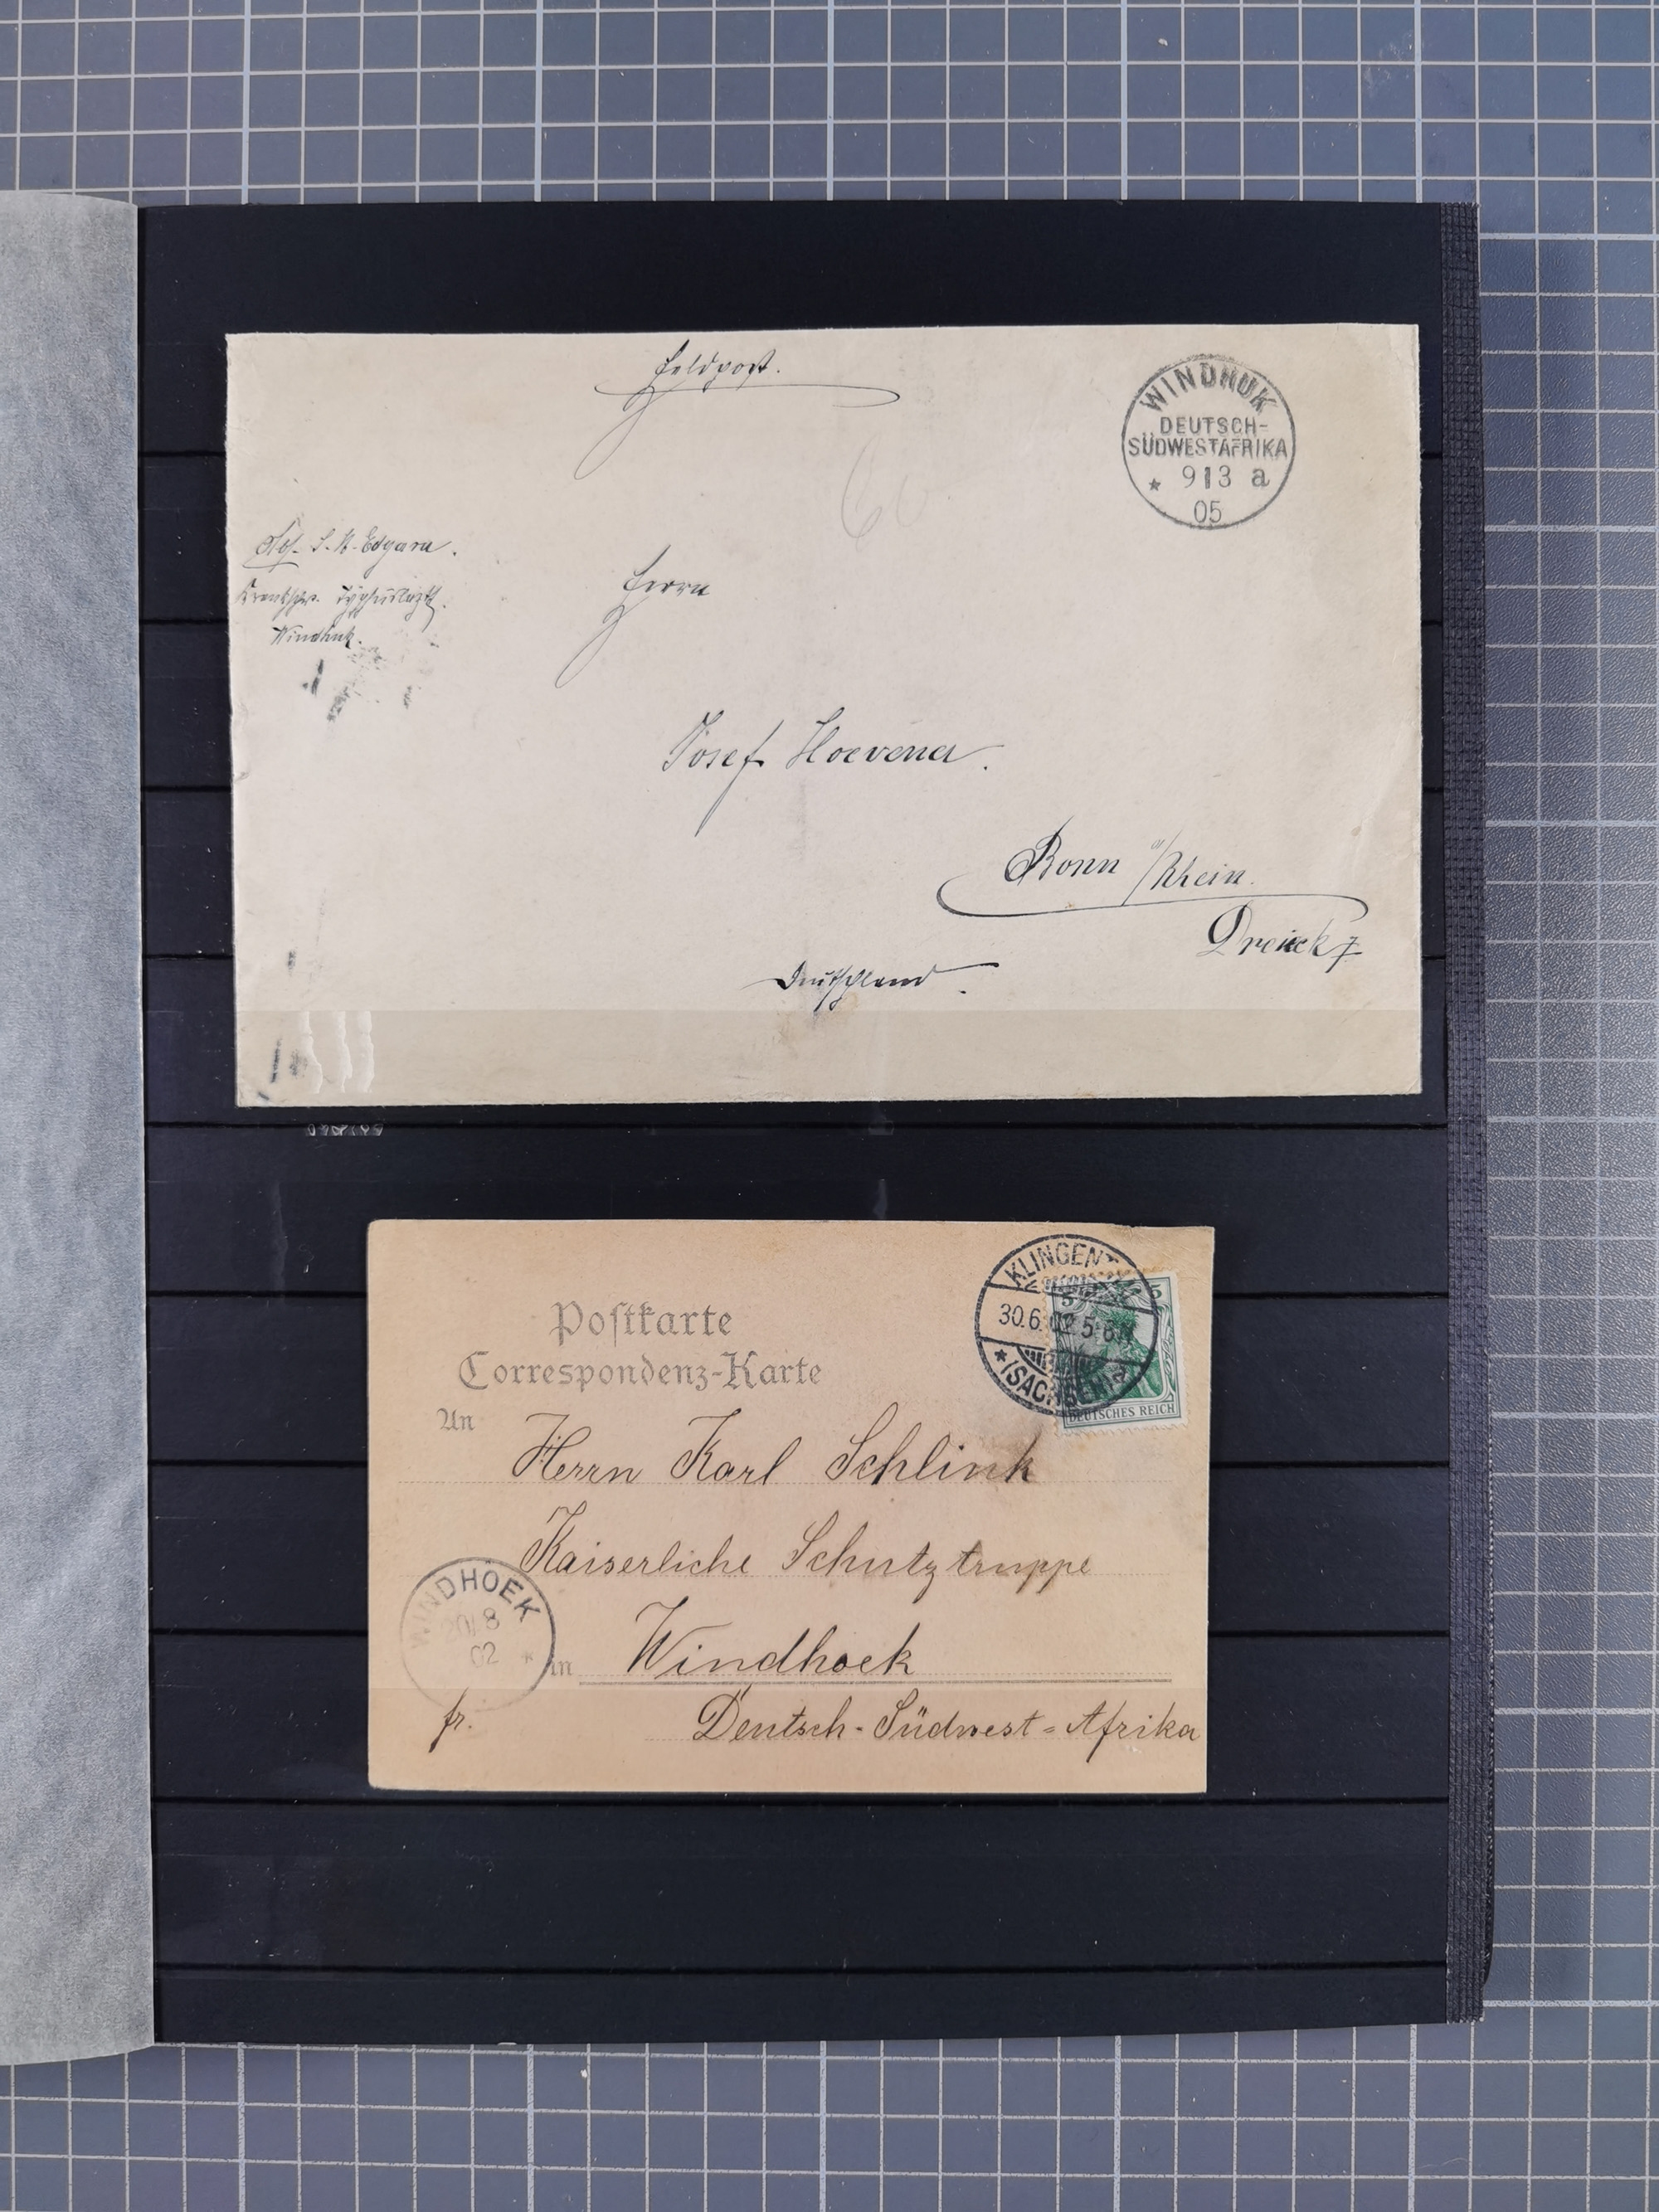 Feldpost.
WINDHUK
DEUTSCH-
SÜDWESTAFRIKA
* 9 13 a
05
Abs. S. H. Edgara.
Windhuk.
Herrn
Josef Hoevener.
Bonn a/Rhein.
Dreieck 7
Deutschland.
KLINGENT
30.6.02 5-6N
* (SACHSEN) a
5 5
DEUTSCHES REICH
Postkarte
Correspondenz-Karte
An
Herrn Karl Schlink
Kaiserliche Schutztruppe
WINDHOEK
20/8
02 *
in Windhoek
fr.
Deutsch-Südwest=Afrika